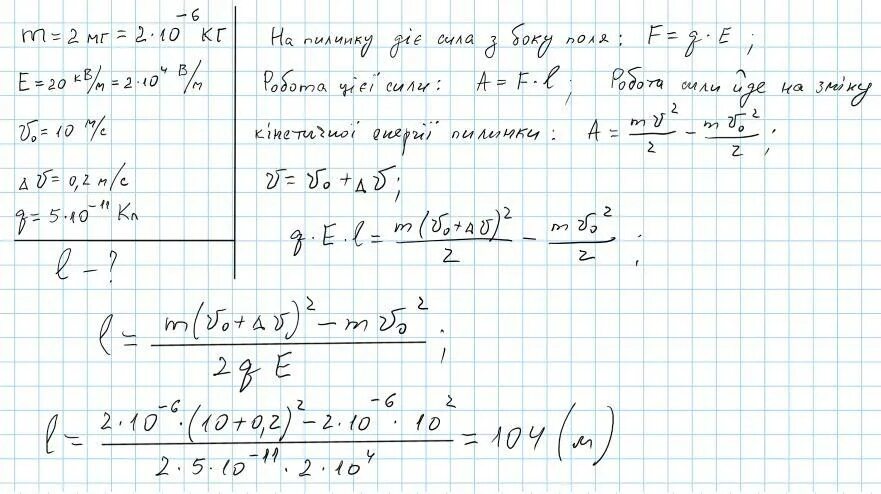 m = 2 мг = 2·10⁻⁶ кг
E = 20 кВ/м = 2·10⁴ В/м
υ₀ = 10 м/с
Δυ = 0,2 м/с
q = 5·10⁻¹¹ Кл
l – ?
На пилинку діє сила з боку поля: F = q·E ;
Робота цієї сили: A = F·l ; Робота сили йде на зміну
кінетичної енергії пилинки: A = mυ²/2 – mυ₀²/2 ;
υ = υ₀ + Δυ ;
q·E·l = m(υ₀+Δυ)²/2 – mυ₀²/2 ;
l = (m(υ₀+Δυ)² – mυ₀²)/(2qE) ;
l = (2·10⁻⁶·(10+0,2)² – 2·10⁻⁶·10²)/(2·5·10⁻¹¹·2·10⁴) = 104 (м)